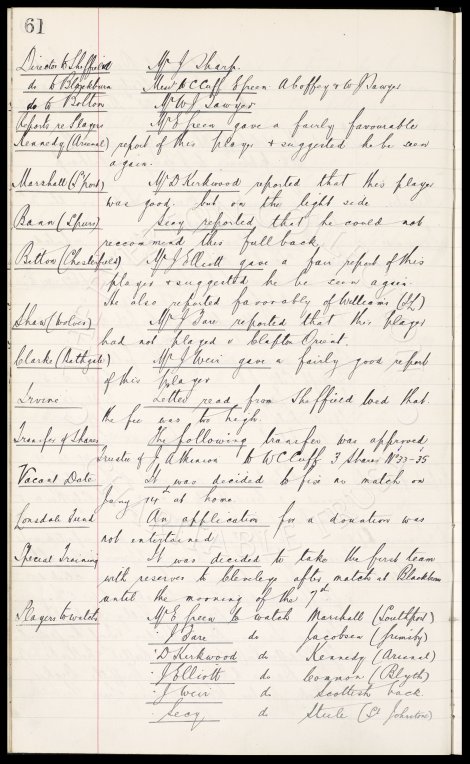 61
Director to Sheffield Mr J Sharp.
do to Blackburn Messrs W C Cuff E Green A Coffey & W J Sawyer
do to Bolton Mr W J Sawyer
Reports re Players Mr E Green gave a fairly favourable
Kennedy (Arsenal) report of this player & suggested he be seen
again.
Marshall (S'port) Mr D Kirkwood reported that this player
was good. but on the light side
Bann (Spurs) Secy reported that he could not
recommend this full back
Bitton (Chesterfield) Mr J Elliott gave a fair report of this
player & suggested he be seen again.
He also reported favorably of Williams
Shaw (Wolves) Mr J Fare reported that this player
had not played v Clapton Orient.
Clarke (Bathgate) Mr J Weir gave a fairly good report
of this player
Irvine Letter read from Sheffield Wed that
the fee was too high.
Transfer of Shares The following transfer was approved
Trustee of J Atkinson to W C Cuff 3 Shares No 33-35
Vacant Date It was decided to fix no match on
Jany 14th at home.
Lonsdale Fund An application for a donation was
not entertained
Special Training It was decided to take the first team
with reserves to Cleveleys after match at Blackburn
until the morning of the 7th
Players to watch Mr E Green to watch Marshall (Southport)
" J Fare do Jacobson (Grimsby)
" D Kirkwood do Kennedy (Arsenal)
" J Elliott do Common (Blyth)
" J Weir do Scottish back.
Secy do Steele (St Johnstone)